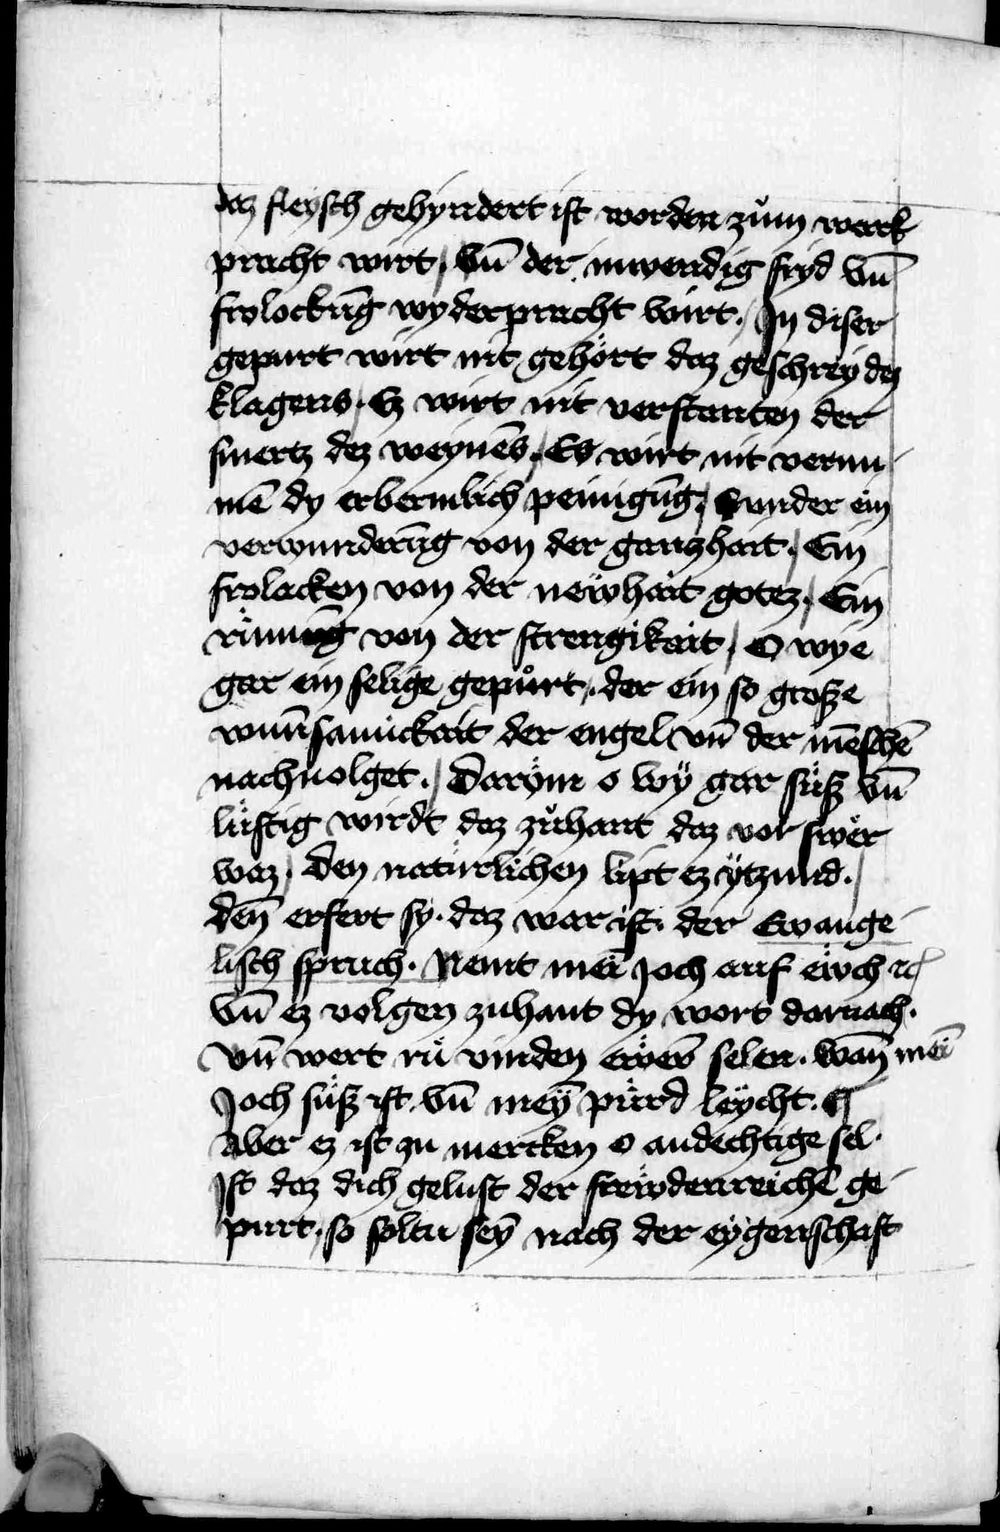 daz fleysch gehyndert ist worden zům werck
pracht wirt / vn̄ der inwendig fryd vn̄
frolockūg wyderpracht wirt / In diser
gepurt wirt nit gehört daz geschrey dez
klagens / Ez wirt nit verstanten der
smertz dez weynēs / Es wirt nit vernu
mē dy erbermlich peinigūg / Sunder ein
verwunderūg von der gantzhait / Ein
frolacken von der newhait gotez / Ein
von der strengikait / O wye
gar ein selige gepůrt / der ein so große
wunsamickait der engel vn̄ der mēschē
nachuolget / Darum o wÿ gar süß vn̄
lüstig wirdt daz zůhant daz vor swer
waz / den natürlichen lipt ez ÿtzund /
den̄ erfert sy · daz war ist · der Ewange
lisch spruch · Nemt mei Joch auf ewch ꝛc
Vn̄ ez volgen zuhant dy wort darnach ·
vn̄ wert rů vinden ewer̄ selen · wan̄ mei
Joch süß ist vn̄ mey pürd leycht · ¶
Aber ez ist zu mercken o andechtige sel ·
Ist daz dich gelust der frewdenreichē ge
purt / so soltu sey nach der eygenschaft